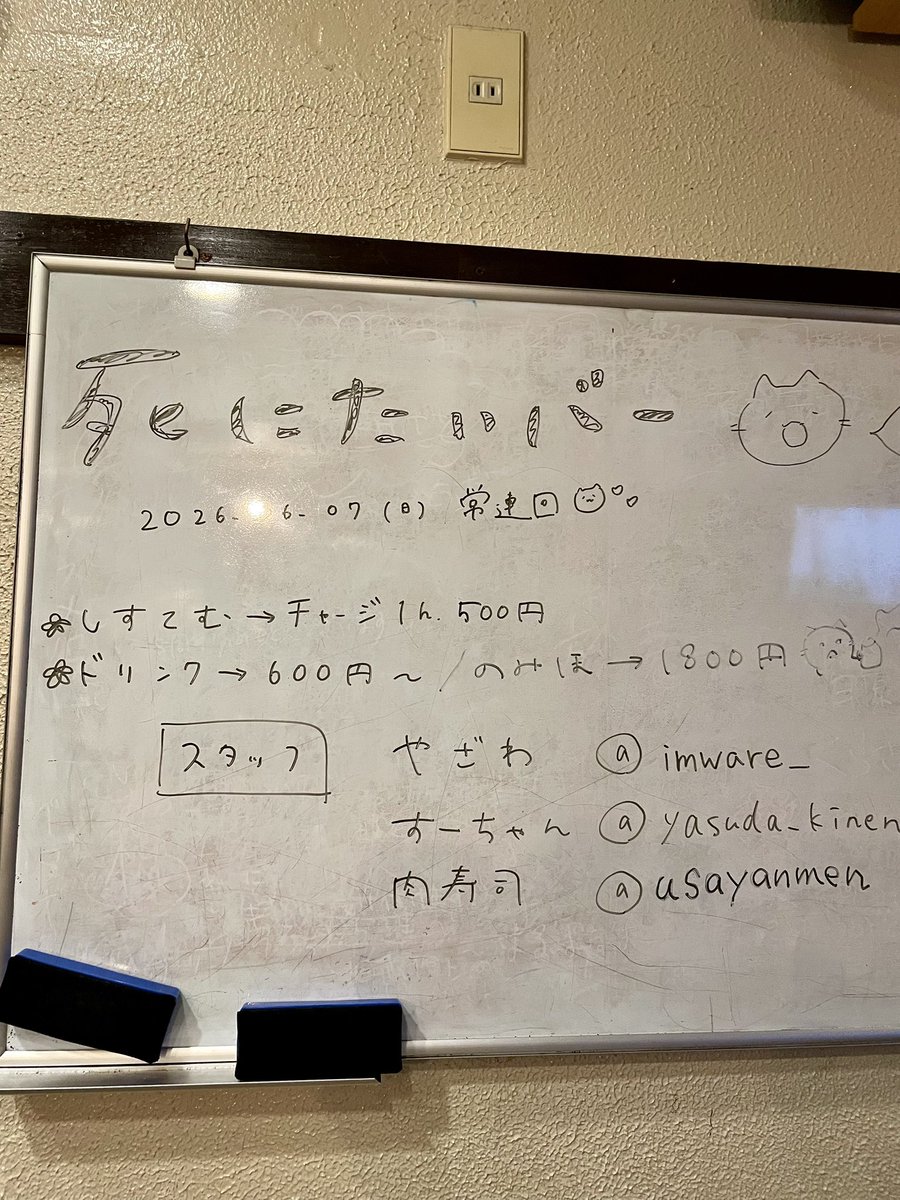 死にたいバー
2026.06.07(日) 常連回
しすてむ→チャージ1h.500円
ドリンク→600円～/のみほ→1800円
スタッフ
やざわ @imware_
すーちゃん @yasuda_kinen
肉寿司 @usayanmen